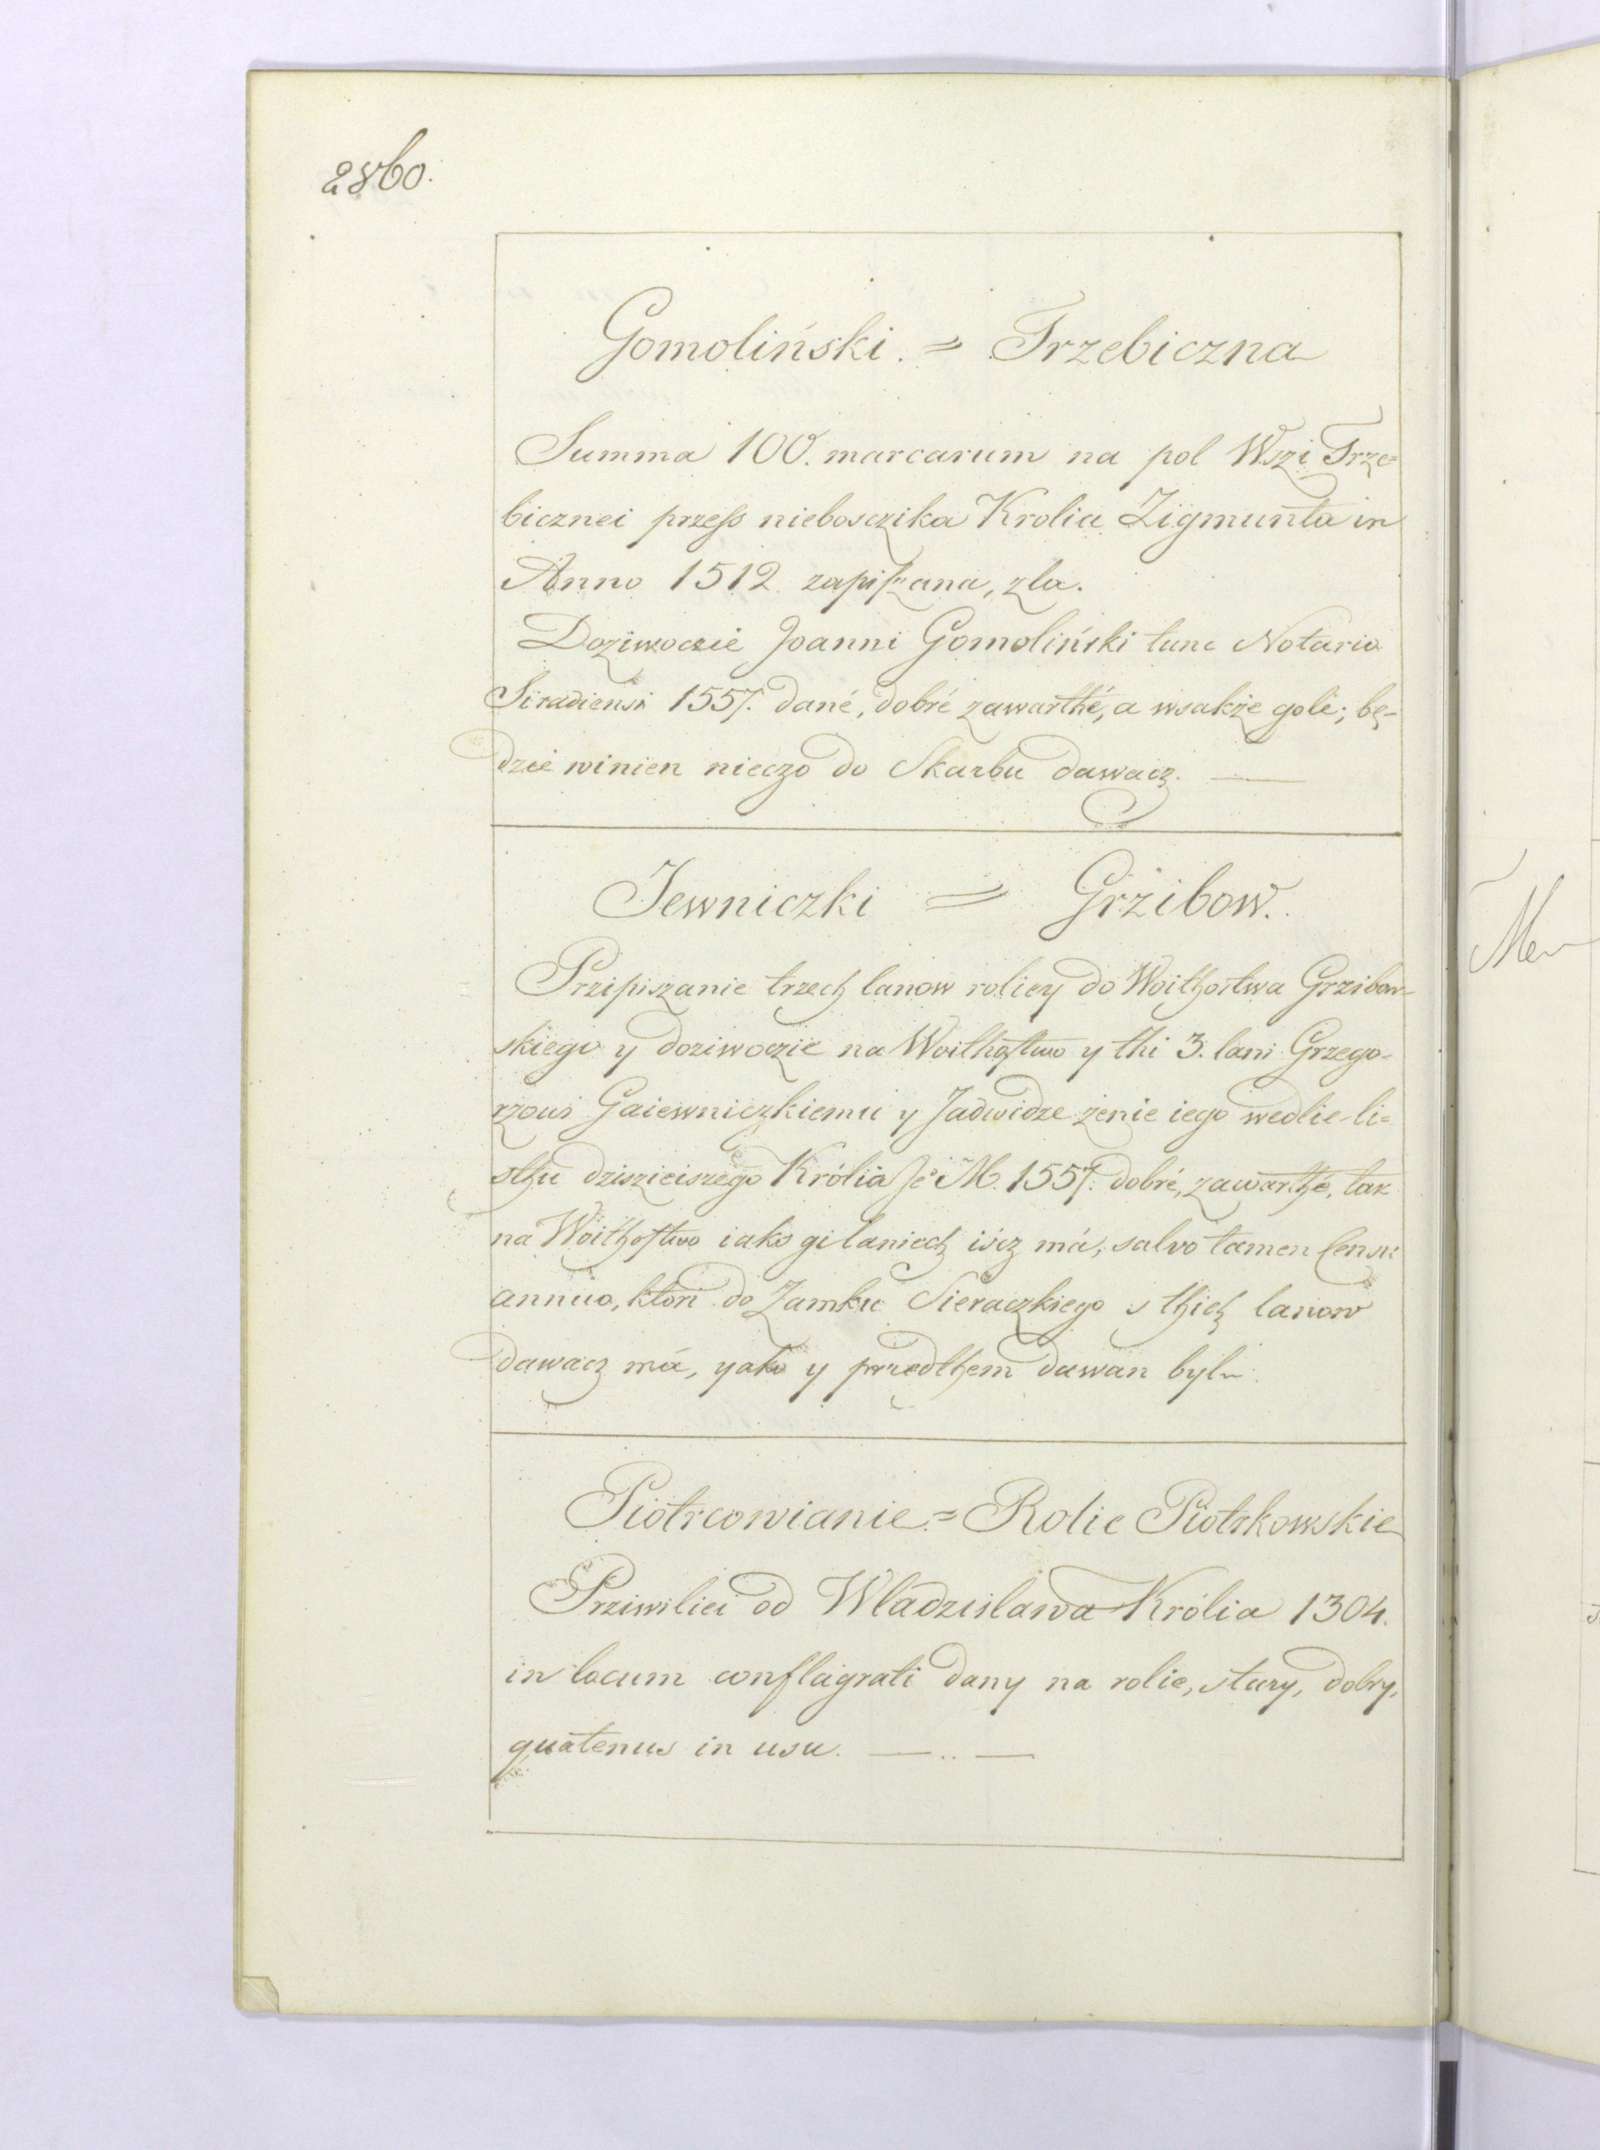 2860.
Gomoliński. = Trzebiczna
Summa 100. marcarum na pol Wszi Trze=
bicznei przess niebosczika Krolia Zigmunta in
Anno 1512 zapiszana, zla.
Doziwoczie Joanni Gomoliński tunc Notario
Siradiensi 1557. dané, dobré zawarthé, a wsakże gole; bę-
dzie winien nieczo do Skarbu dawacz.
Jewniczki = Grzibow.
Przipiszanie trzech lanow roliey do Woithostwa Grzibow-
skiego y doziwoczie na Woithostwo y thi 3. lani Grzego-
rzowi Gaiewniczkiemu y Jadwidze żenie iego wedlie li=
sthu dziszieiszego Królia Je° M. 1557. dobré, zawarthé, tak
na Woithostwo iako gi laniech iścz má, salvo tamen Censu
annuo, ktori do Zamku Sieraczkiego s thich lanow
dawacz má, yako y przedthem dawan byl.
Piotrcowianie = Rolie Piotrkowskie
Prziwiliei od Wladzislawa Królia 1304.
in locum conflagrati dany na rolie, stary, dobry,
quatenus in usu.
Men